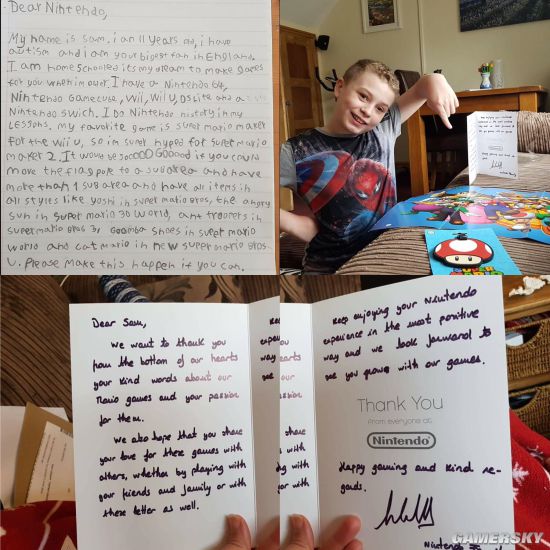 Dear Nintendo,
My name is sam. i an 11 years old, i have
autism and i am your biggest fan in England.
I am homeschooled its my dream to make games
for you when im older. I have a Nintendo 64,
Nintendo Gamecube, Wii, Wii U, DS lite and a
Nintendo swich. I do Nintendo history in my
Lessons. my favorite game is super mario maker
for the wii U, so im super hyped for super mario
maker 2. It would be soooOO Gooood if you could
move the flag pole to a subarea and have
more than 1 sub area and have all items in
all styles like yoshi in super mario bros, the angry
sun in super mario 3D World, ant troopers in
super mario bros 3, Goomba shoes in super mario
world and cat mario in new super mario bros.
U. Please make this happen if you can.
Dear Sam,
We want to thank you
from the bottom of our hearts
your kind words about our
Mario games and your passion
for them.
We also hope that you share
your love for these games with
others, whether by playing with
your friends and family or with
these letter as well.
Keep
way
see
hearts
our
share
with
with
Keep enjoying your Nintendo
experience in the most positive
way and we look forward to
see you grow with our games.
Thank You
from everyone at
Nintendo
Happy gaming and kind re-
gards.
Nintendo
GAMERSKY